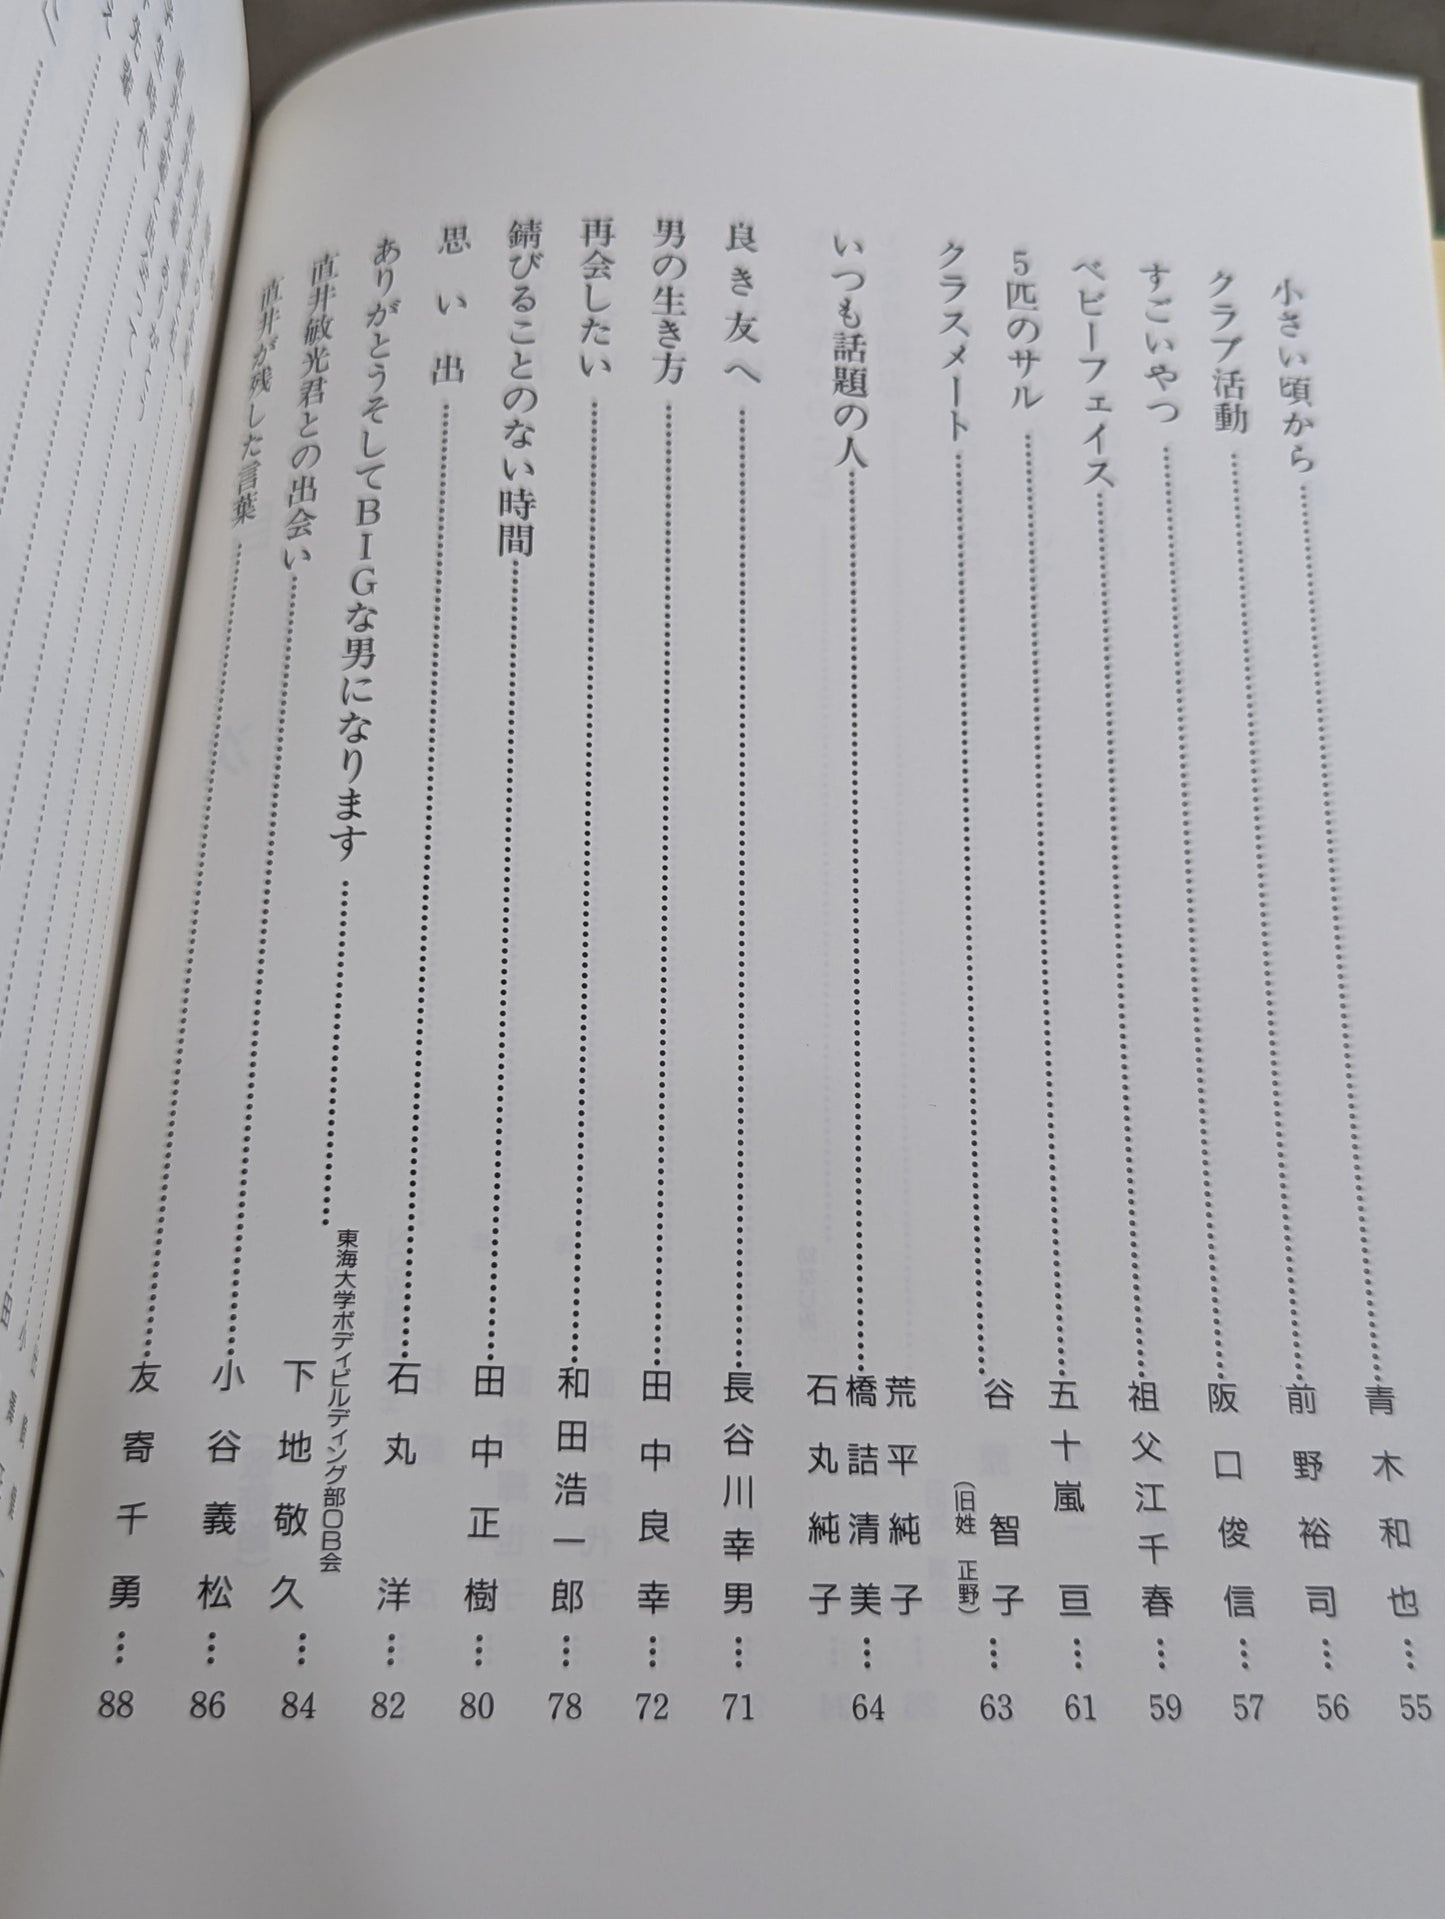 小さい頃から……青木和也…55
クラブ活動……前野裕司…56
すごいやつ……阪口俊信…57
ベビーフェイス……祖父江千春…59
5匹のサル……五十嵐亘…61
クラスメート……谷智子(旧姓 正野)…63
いつも話題の人……荒平純子
橋詰清美…64
石丸純子
良き友へ……長谷川幸男…71
男の生き方……田中良幸…72
再会したい……和田浩一郎…78
錆びることのない時間……田中正樹…80
思い出……石丸洋…82
ありがとうそしてBIGな男になります……東海大学ボディビルディング部OB会
下地敬久…84
直井敏光君との出会い……小谷義松…86
直井が残した言葉……友寄千勇…88